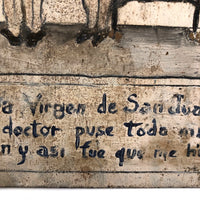 a Virgen de San Jua
doctor puse todo mi
n y asi fue que me hi